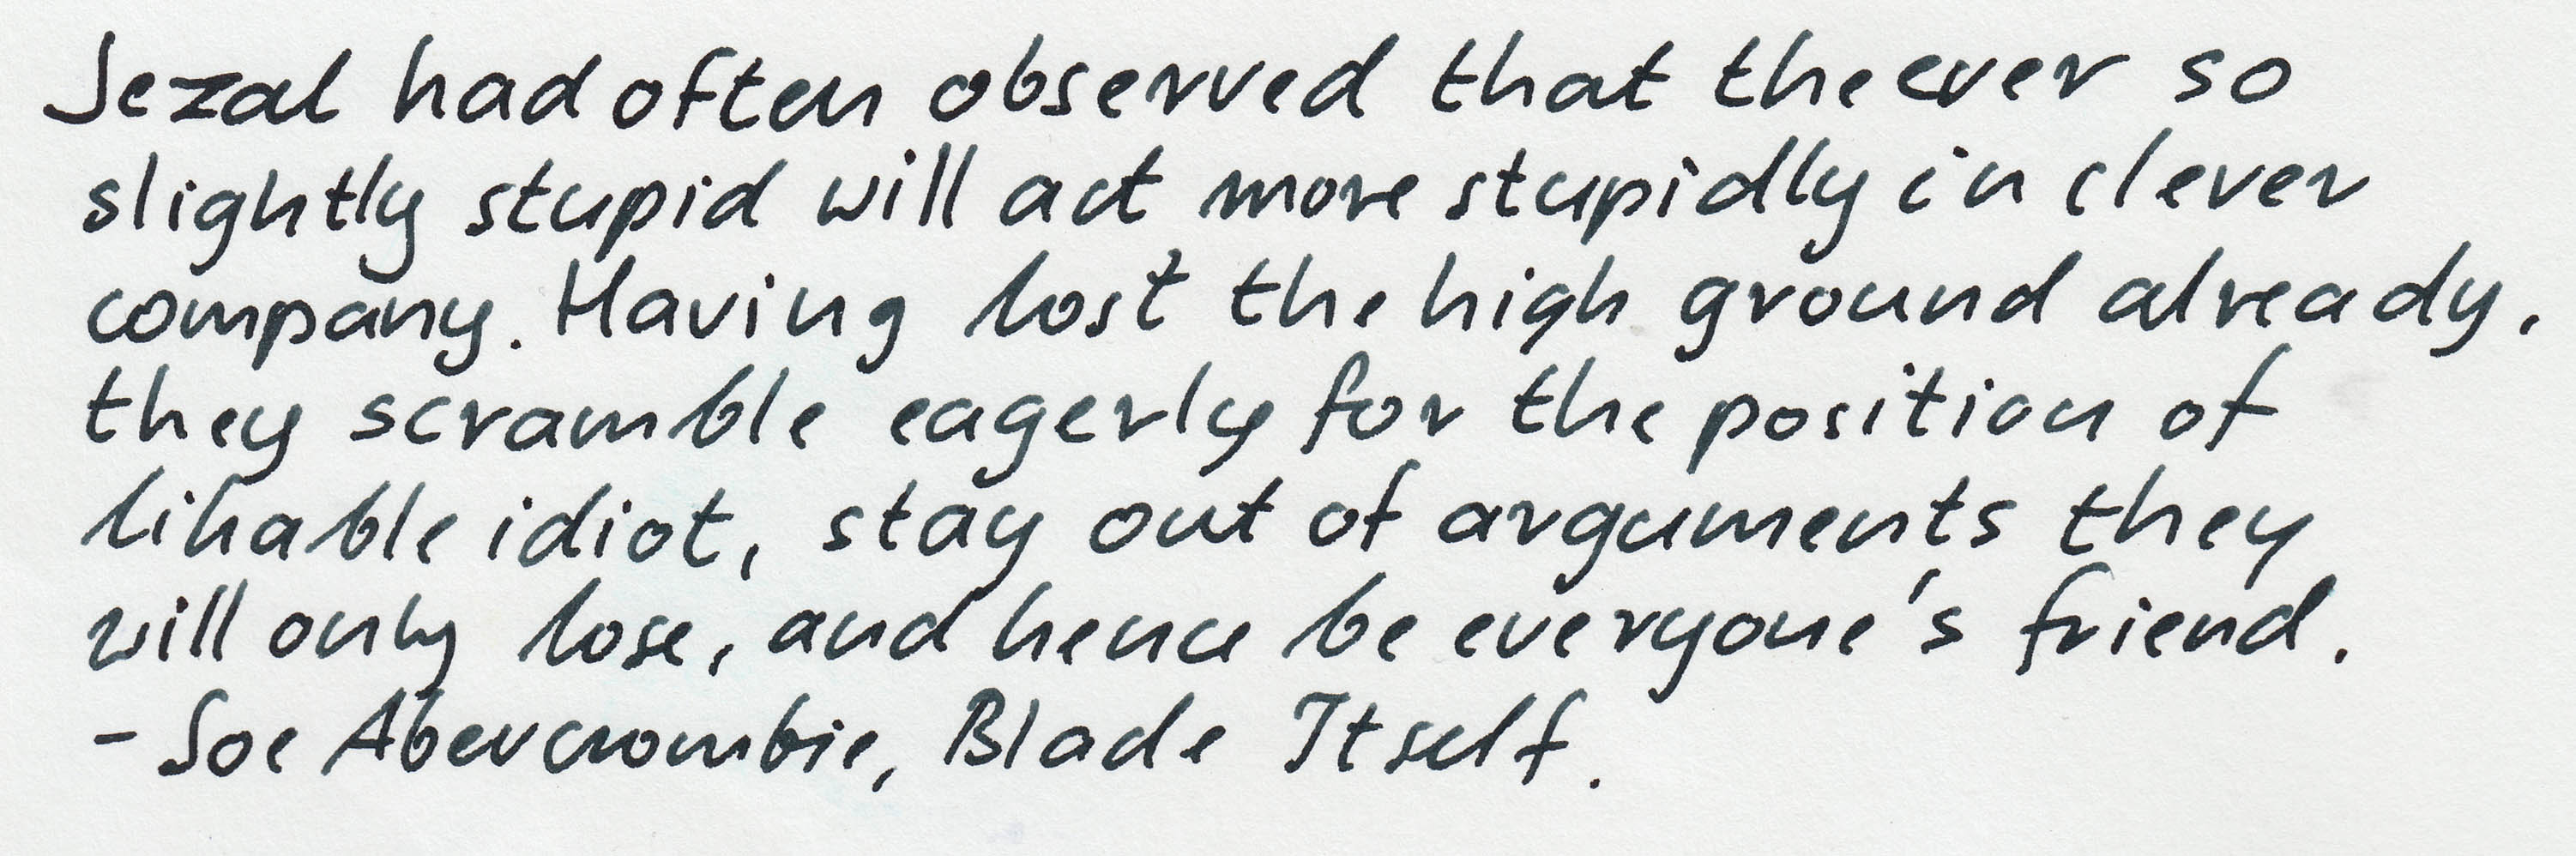 Jezal had often observed that the ever so
slightly stupid will act more stupidly in clever
company. Having lost the high ground already,
they scramble eagerly for the position of
likable idiot, stay out of arguments they
will only lose, and hence be everyone's friend.
- Joe Abercrombie, Blade Itself.